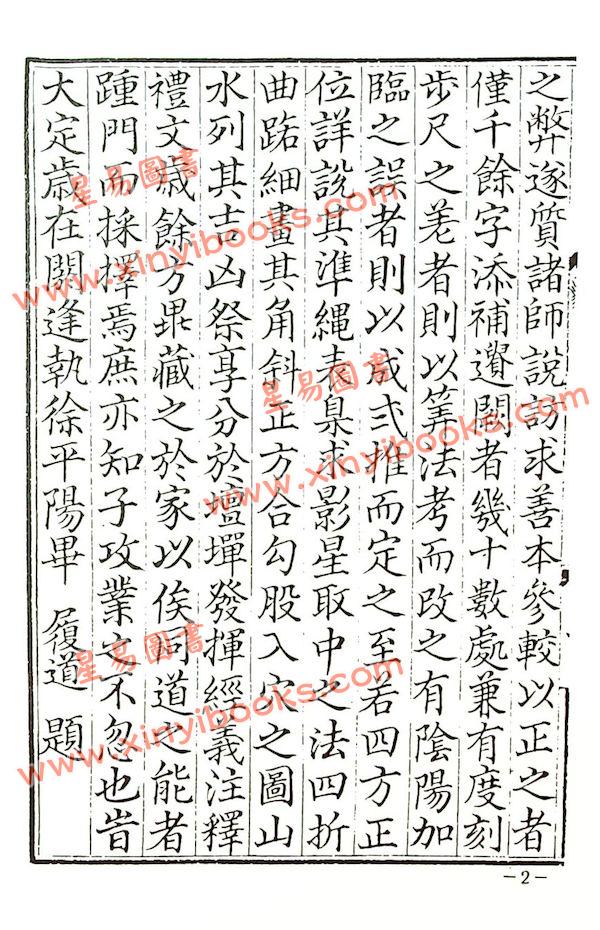 之弊遂質諸師說訪求善本參較以正之者
僅千餘字添補遺闕者幾十數處兼有度刻
步尺之差者則以筭法考而改之有陰陽加
臨之誤者則以成式推而定之至若四方正
位詳說其準繩表臬求影星取中之法四折
曲路細畫其角斜正方合勾股入穴之圖山
水列其吉凶祭享分於壇墠發揮經義注釋
禮文歲餘方畢藏之於家以俟同道之能者
踵門而採擇焉庶亦知子攻業之不忽也旹
大定歲在閼逢執徐平陽畢 履道 題
－2－
星易圖書
www.xinyibooks.com
星易圖書
www.xinyibooks.com
星易圖書
www.xinyibooks.com